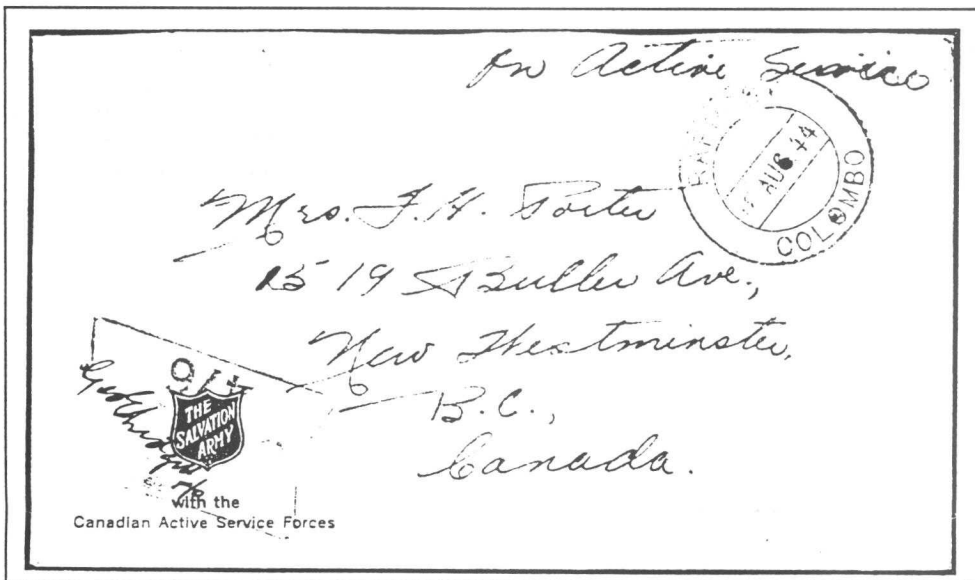 On Active Service
RAF POST
AUG 44
COLOMBO
Mrs. F. H. Porter
1519 Buller Ave.,
New Westminster,
B.C.,
Canada.
THE
SALVATION
ARMY
with the
Canadian Active Service Forces